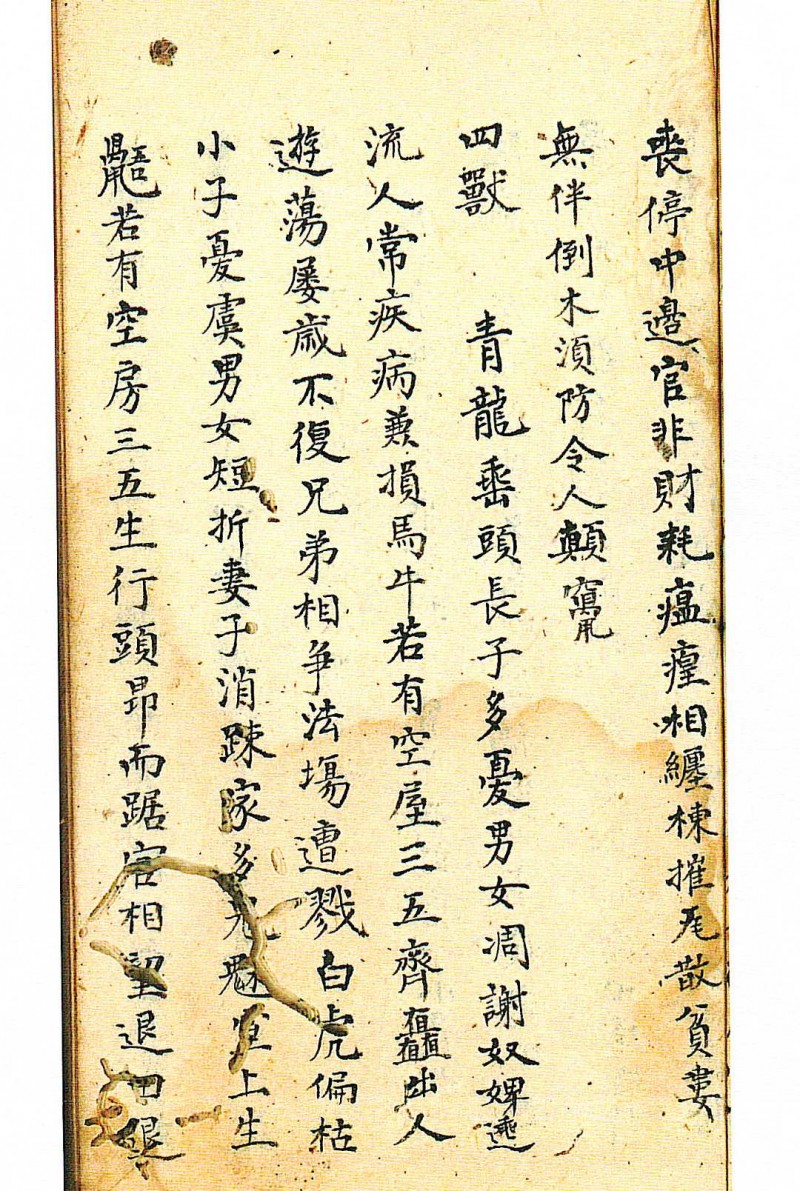 喪停中邊官非財耗瘟瘟相纏棟摧尾散貧妻
無伴倒木湏防令人顛竄
四獸　青龍垂頭長子多憂男女凋謝奴婢逃
流人常疾病兼損馬牛若有空屋三五齊矗出人
遊蕩屡歲不復兄弟相爭法場遭戮白虎偏枯
小子憂虞男女短折妻子消踈家多鬼魅上生
若有空房三五生行頭昂而踞宮相望退田